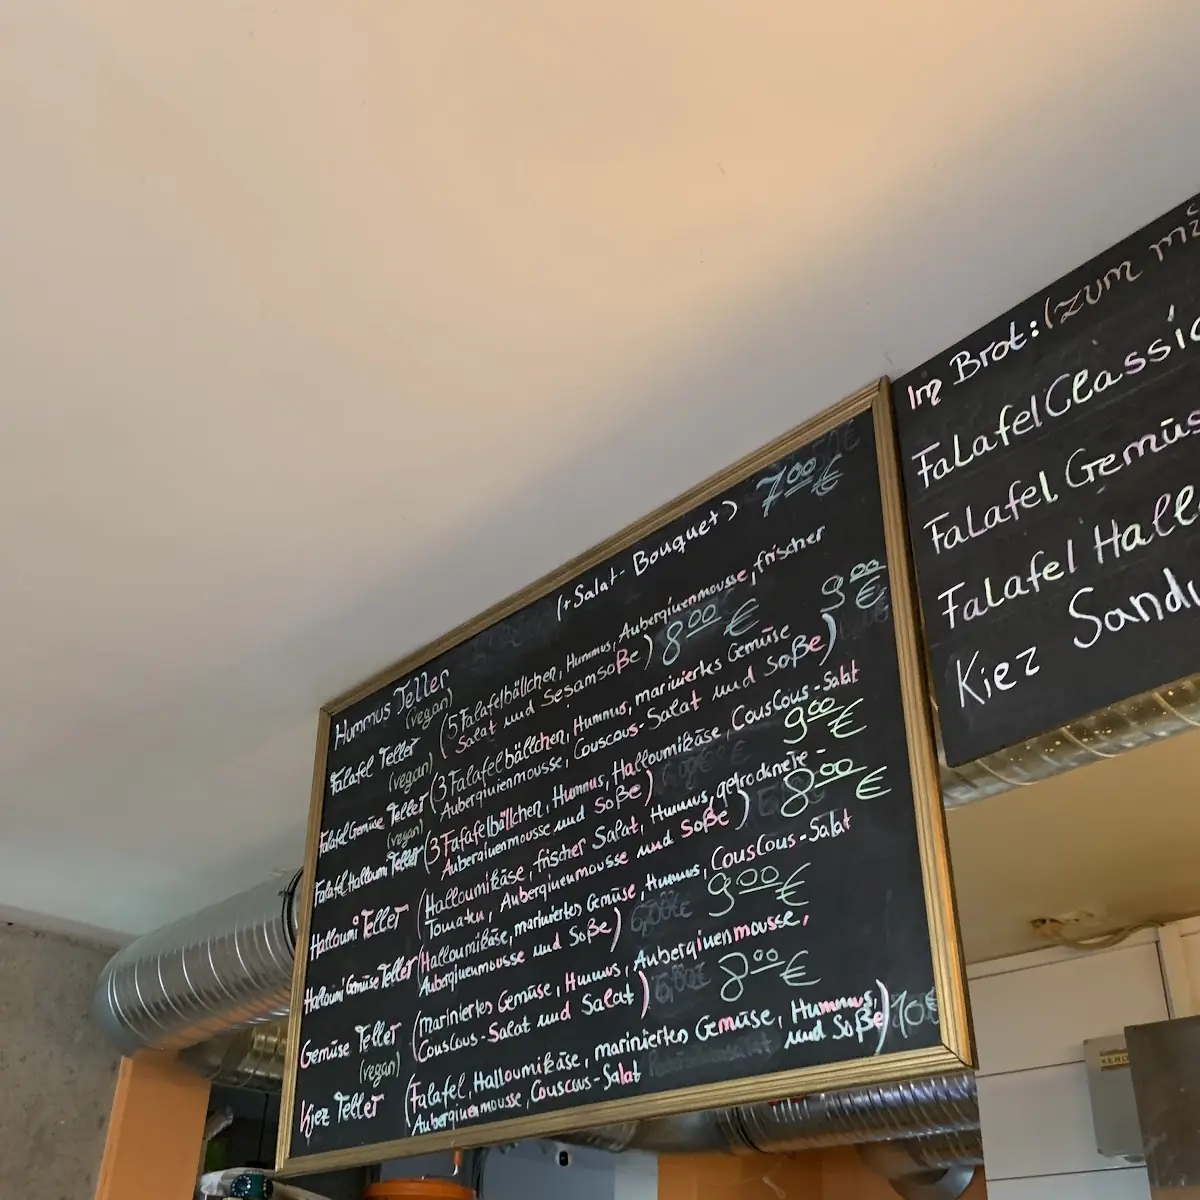 Hummus Teller (+Salat-Bouquet) 7,00 €
(vegan)
Falafel Teller (5 Falafelbällchen, Hummus, Auberginenmousse, frischer
(vegan) Salat und Sesamsoße) 8,00 €
Falafel Gemüse Teller (3 Falafelbällchen, Hummus, mariniertes Gemüse 9,00 €
(vegan) Auberginenmousse, Couscous-Salat und Soße)
Falafel Halloumi Teller (3 Fafafelbällchen, Hummus, Halloumikäse, CousCous-Salat
Auberginenmousse und Soße) 9,00 €
Halloumi Teller (Halloumikäse, frischer Salat, Hummus, getrocknete-
Tomaten, Auberginenmousse und Soße) 8,00 €
Halloumi Gemüse Teller (Halloumikäse, mariniertes Gemüse, Hummus, CousCous-Salat
Auberginenmousse und Soße) 9,00 €
Gemüse Teller (mariniertes Gemüse, Hummus, Auberginenmousse,
(vegan) Couscous-Salat und Salat) 8,00 €
Kiez Teller (Falafel, Halloumikäse, mariniertes Gemüse, Hummus,
Auberginenmousse, Couscous-Salat und Soße) 10€
Im Brot: (zum
Falafel Classic
Falafel Gemüs
Falafel Hall
Kiez Sand